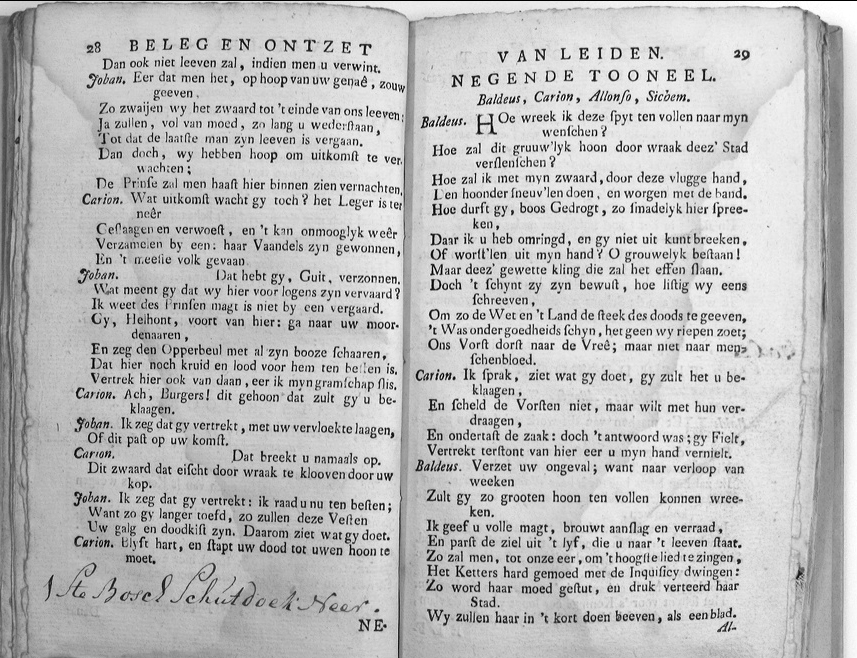 28 BELEG EN ONTZET
Dan ook niet leeven zal, indien men u verwint.
Johan. Eer dat men het, op hoop van uw genaê, zouw
geeven.
Zo zwaijen wy het zwaard tot 't einde van ons leeven;
Ja zullen, vol van moed, zo lang u wederſtaan,
Tot dat de laatſte man zyn leeven is vergaan.
Dan doch, wy hebben hoop om uitkomſt te ver-
wachten;
De Prinſe zal men haaſt hier binnen zien vernachten.
Carion. Wat uitkomſt wacht gy toch? het Leger is ter
neêr
Geſlaagen en verwoeſt, en 't kan onmooglyk weêr
Verzamelen by een: haar Vaandels zyn gewonnen,
En 't meeſte volk gevaan.
Johan. Dat hebt gy, Guit, verzonnen.
Wat meent gy dat wy hier voor logens zyn vervaard?
Ik weet des Prinſen magt is niet by een vergaard.
Gy, Helhont, voort van hier: ga naar uw moor-
denaaren,
En zeg den Opperbeul met al zyn booze ſchaaren,
Dat hier noch kruid en lood voor hem ten beſten is.
Vertrek hier ook van daan, eer ik myn gramſchap ſlis.
Carion. Ach, Burgers! dit gehoon dat zult gy u be-
klaagen.
Johan. Ik zeg dat gy vertrekt, met uw vervloekte laagen,
Of dit paſt op uw komſt.
Carion. Dat breekt u namaals op.
Dit zwaard dat eiſcht door wraak te klooven door uw
kop.
Johan. Ik zeg dat gy vertrekt: ik raad u nu ten beſten;
Want zo gy langer toefd, zo zullen deze Veſten
Uw galg en doodkiſt zyn. Daarom ziet wat gy doet.
Carion. Blyft hart, en ſtapt uw dood tot uwen hoon te
moet.
Neer.
NE-
VAN LEIDEN. 29
NEGENDE TOONEEL.
Baldeus, Carion, Allonſo, Sichem.
Baldeus. HOe wreek ik deze ſpyt ten vollen naar myn
wenſchen?
Hoe zal dit gruuw'lyk hoon door wraak deez' Stad
verſlenſchen?
Hoe zal ik met myn zwaard, door deze vlugge hand,
Een hoonder ſneuv'len doen, en worgen met de band.
Hoe durft gy, boos Gedrogt, zo ſmadelyk hier ſpree-
ken,
Daar ik u heb omringd, en gy niet uit kunt breeken,
Of worſt'len uit myn hand? O grouwelyk beſtaan!
Maar deez' gewette kling die zal het effen ſlaan.
Doch 't ſchynt zy zyn bewuſt, hoe liſtig wy eens
ſchreeven,
Om zo de Wet en 't Land de ſteek des doods te geeven,
't Was onder goedheids ſchyn, het geen wy riepen zoet;
Ons Vorſt dorſt naar de Vreê; maar niet naar men-
ſchenbloed.
Carion. Ik ſprak, ziet wat gy doet, gy zult het u be-
klaagen,
En ſcheld de Vorſten niet, maar wilt met hun ver-
draagen,
En ondertaſt de zaak: doch 't antwoord was; gy Fielt,
Vertrekt terſtont van hier eer u myn hand vernielt.
Baldeus. Verzet uw ongeval; want naar verloop van
weeken
Zult gy zo grooten hoon ten vollen konnen wree-
ken.
Ik geef u volle magt, brouwt aanſlag en verraad,
En parſt de ziel uit 't lyf, die u naar 't leeven ſtaat.
Zo zal men, tot onze eer, om 't hoogſte lied te zingen,
Het Ketters hard gemoed met de Inquiſicy dwingen:
Zo word haar moed geſtut, en druk verteerd haar
Stad.
Wy zullen haar in 't kort doen beeven, als een blad.
Al-